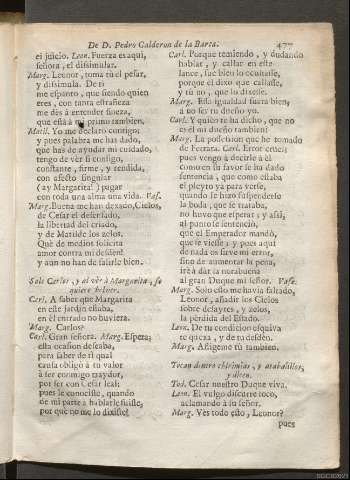 De D. Pedro Calderon de la Barca. 477
el juicio. Leon. Fuerza es aqui,
señora, el dissimular.
Marg. Leonor, toma tù el pesar,
y dissimula. De ti
me espanto, que siendo quien
eres, con tanta estrañeza
me dès à entender fineza,
que està à mi primo tambien.
Matil. Yo me declaro contigo;
y pues palabra me has dado,
que has de ayudar mi cuidado,
tengo de vèr si consigo,
constante, firme, y rendida,
con afecto singular
(ay Margarita!) pagar
con toda una alma una vida. Vas.
Marg. Buena me han dexado, Cielos,
de Cesar el desenfado,
la libertad del criado,
y de Matilde los zelos.
Què de medios solicita
amor contra mi desdèn!
y aun no han de salirle bien.
Sale Carlos, y al vèr à Margarita, se
quiere bolver.
Carl. A saber que Margarita
en este jardin estaba,
en èl entrado no huviera.
Marg. Carlos?
Carl. Gran señora. Marg. Espera;
esta ocasion deseaba,
para saber de ti qual
causa obligò à tu valor
à ser conmigo traydor,
por ser con Cesar leal;
pues le conociste, quando
de mi parte à hablarle fuiste,
por què no me lo dixiste?
Carl. Porque temiendo, y dudando
hablar, y callar en este
lance, fue bien lo ocultasse,
porque èl dixo que callasse,
y tù no, que lo dixesse.
Marg. Essa igualdad fuera bien,
à no ser tu dueño yo.
Carl. Y quien te ha dicho, que no
es èl mi dueño tambien?
Marg. La possession que he tomado
de Ferrara. Carl. Error cruel;
pues vengo à decirle à èl
como en su favor se ha dado
sentencia, que como estaba
el pleyto yà para verse,
quando se hizo suspenderse
la boda, que se trataba,
no huvo que esperar; y assi,
al punto se sentenciò,
que el Emperador mandò,
que se viesse; y pues aqui
de nada os sirve mi error,
sino de aumentar la pena,
irè à dàr la norabuena
al gran Duque mi señor. Vase.
Marg. Solo esso me havia faltado,
Leonor, añadir los Cielos
sobre desayres, y zelos,
la pèrdida del Estado.
Leon. De tu condicion esquiva
te quexa, y de tu desdèn.
Marg. Afligeme tù tambien.
Tocan dentro chirimias, y atabalillos,
y dicen.
Tod. Cesar nuestro Duque viva.
Leon. El vulgo discurre loco,
aclamando à su señor.
Marg. Ves todo esso, Leonor?
pues